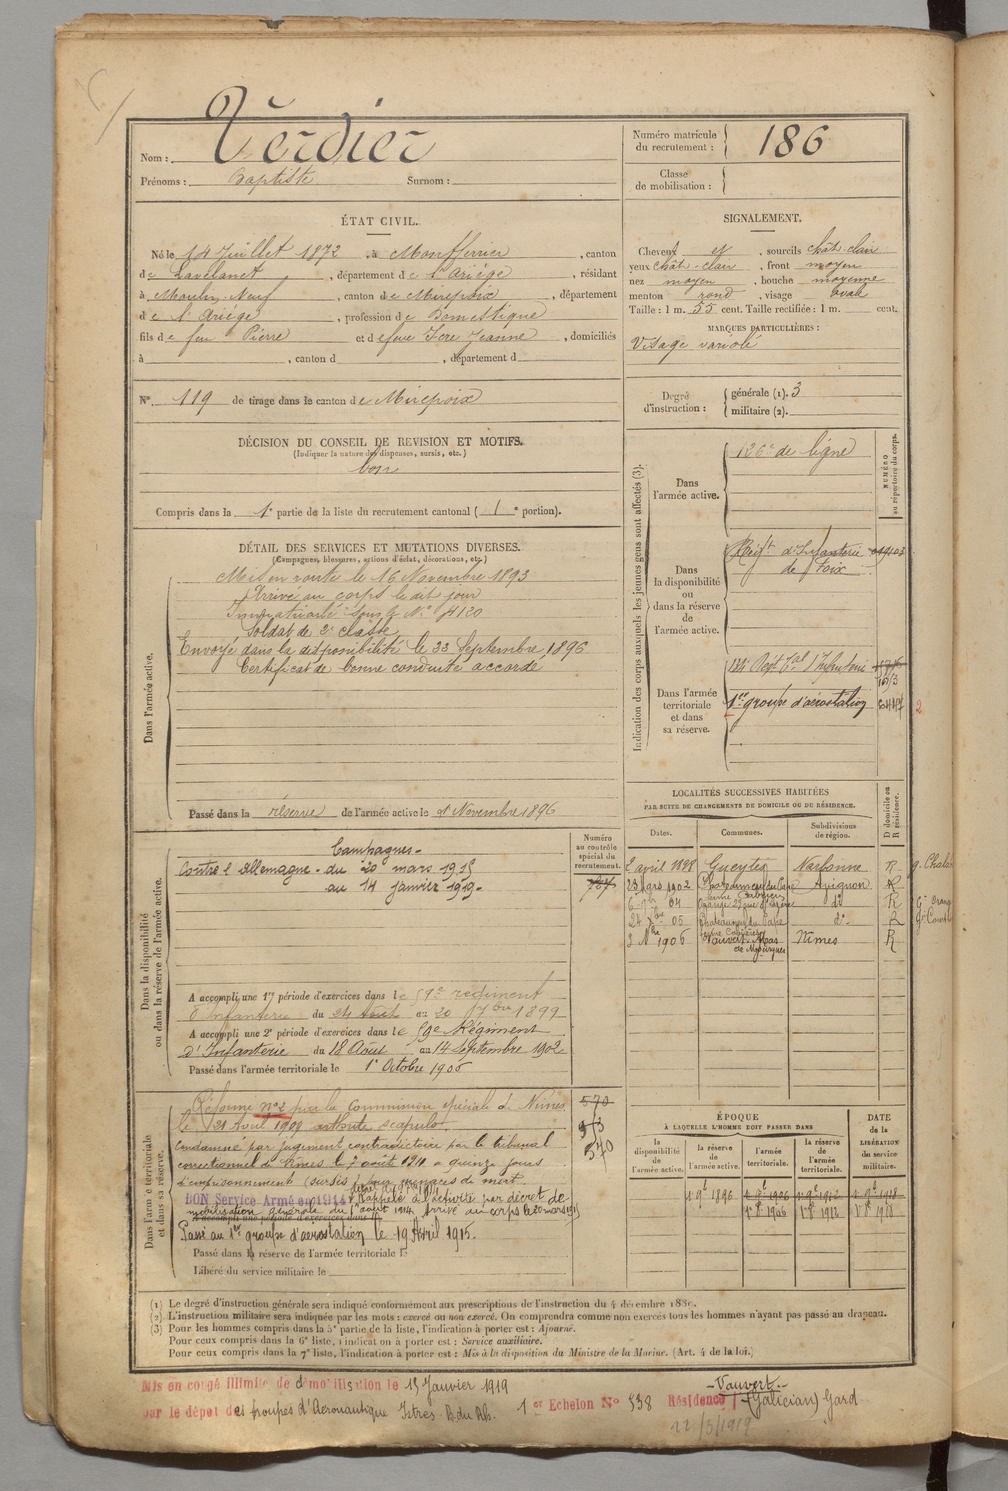 Nom : Verdier
Prénoms : Baptiste Surnom :
Numéro matricule du recrutement : 186
Classe de mobilisation :
ÉTAT CIVIL.
Né le 14 Juillet 1872, à Montferrier, canton
de Lavelanet, département de l'Ariège, résidant
à Moulin Neuf, canton de Mirepoix, département
de l'Ariège, profession de Domestique
fils de feu Pierre et de feue Icre Jeanne, domiciliés
à , canton d , département d
N° 119 de tirage dans le canton de Mirepoix
DÉCISION DU CONSEIL DE REVISION ET MOTIFS.
(Indiquer la nature des dispenses, sursis, etc.)
bon
Compris dans la 1e partie de la liste du recrutement cantonal ( 1e portion).
SIGNALEMENT.
Cheveux et , sourcils chât-clair
yeux chât-clair, front moyen
nez moyen, bouche moyenne
menton rond, visage oval
Taille : 1 m. 55 cent. Taille rectifiée : 1 m. cent.
MARQUES PARTICULIÈRES :
Visage variolé
Degré d'instruction : générale (1). 3
militaire (2).
DÉTAIL DES SERVICES ET MUTATIONS DIVERSES.
(Campagnes, blessures, actions d'éclat, décorations, etc.)
Dans l'armée active.
Mis en route le 16 Novembre 1893
Arrivé au corps le dit jour
Immatriculé sous le N° 4120
Soldat de 2e classe
Envoyé dans la disponibilité le 22 Septembre 1896
Certificat de bonne conduite accordé
Passé dans la réserve de l'armée active le 1 Novembre 1896
Indication des corps auxquels les jeunes gens sont affectés (3).
NUMÉRO au répertoire du corps.
Dans l'armée active.
126e de ligne
Dans la disponibilité ou dans la réserve de l'armée active.
Régt d'Infanterie
de Foix
Dans l'armée territoriale et dans sa réserve.
Régt tal d'Infanterie
1er groupe d'aérostation
2
LOCALITÉS SUCCESSIVES HABITÉES
PAR SUITE DE CHANGEMENTS DE DOMICILE OU DE RÉSIDENCE.
Dates. Communes. Subdivisions de région. D domicile ou R résidence.
2 avril 1898 Gueytes Narbonne R
23 Mars 1902 Châteauneuf du Pape Avignon R
04 Orange do R
05 Châteauneuf du Pape do R
3 Nbre 1906 Vauvert Mas Nîmes R
Dans la disponibilité ou dans la réserve de l'armée active.
Numéro au contrôle spécial du recrutement.
Campagnes.
Contre l'Allemagne. du 20 mars 1915
au 14 janvier 1919.
A accompli une 1re période d'exercices dans le 59e régiment
d'Infanterie du 24 Août au 20 7bre 1899
A accompli une 2e période d'exercices dans le 59e Régiment
d'Infanterie du 18 Août au 14 Septembre 1902
Passé dans l'armée territoriale le 1er Octobre 1906
Dans l'armée territoriale et dans sa réserve.
Réformé n° 2 par la Commission spéciale de Nîmes
le 21 Avril 1908 arthrite scapulo.
Condamné par jugement contradictoire par le tribunal
correctionnel de Nîmes le 7 août 1910 à quinze jours
d'emprisonnement (sursis) pour menaces de mort.
BON Service Armé en 1914
Rappelé à l'activité par décret de
mobilisation générale du 1er août 1914. Arrivé au corps le 20 mars 1915
A accompli une période d'exercices dans le
Passé au 1er groupe d'aérostation le 19 Avril 1915.
Passé dans la réserve de l'armée territoriale le
Libéré du service militaire le
570
570
ÉPOQUE
À LAQUELLE L'HOMME DOIT PASSER DANS
DATE de la LIBÉRATION du service militaire.
la disponibilité de l'armée active. la réserve de l'armée active. l'armée territoriale. la réserve de l'armée territoriale.
(1) Le degré d'instruction générale sera indiqué conformément aux prescriptions de l'instruction du 4 décembre 1889.
(2) L'instruction militaire sera indiquée par les mots : exercé ou non exercé. On comprendra comme non exercés tous les hommes n'ayant pas passé au drapeau.
(3) Pour les hommes compris dans la 5e partie de la liste, l'indication à porter est : Ajourné.
Pour ceux compris dans la 6e liste, l'indication à porter est : Service auxiliaire.
Pour ceux compris dans la 7e liste, l'indication à porter est : Mis à la disposition du Ministre de la Marine. (Art. 4 de la loi.)
Mis en congé illimité de démobilisation le 15 Janvier 1919
par le dépôt des troupes d'Aéronautique Istres B. du Rh. 1er Echelon N° 538 Résidence
Vauvert
(Galician) Gard
22/3/1919